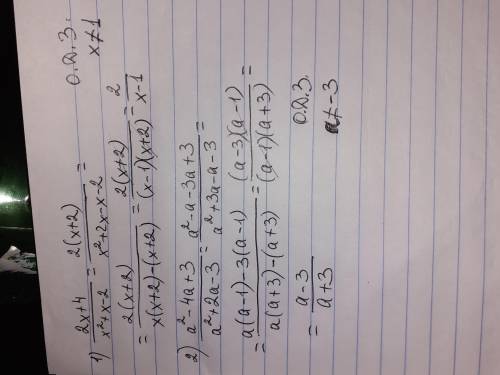 1) (2x+4)/(x²+x-2) = 2(x+2)/(x²+2x-x-2) = О.Д.З.
= 2(x+2)/(x(x+2)-(x+2)) = 2(x+2)/((x-1)(x+2)) = 2/(x-1) x≠1
2) (a²-4a+3)/(a²+2a-3) = (a²-a-3a+3)/(a²+3a-a-3) =
= (a(a-1)-3(a-1))/(a(a+3)-(a+3)) = ((a-3)(a-1))/((a-1)(a+3)) =
= (a-3)/(a+3) О.Д.З.
a≠-3